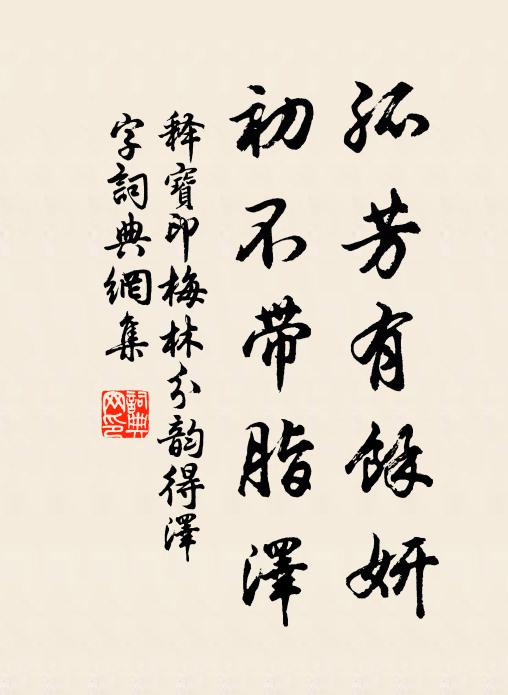 孤芳有餘妍
初不带脂澤
释寶印梅林分韵得澤
字詞典網集
詞典网印